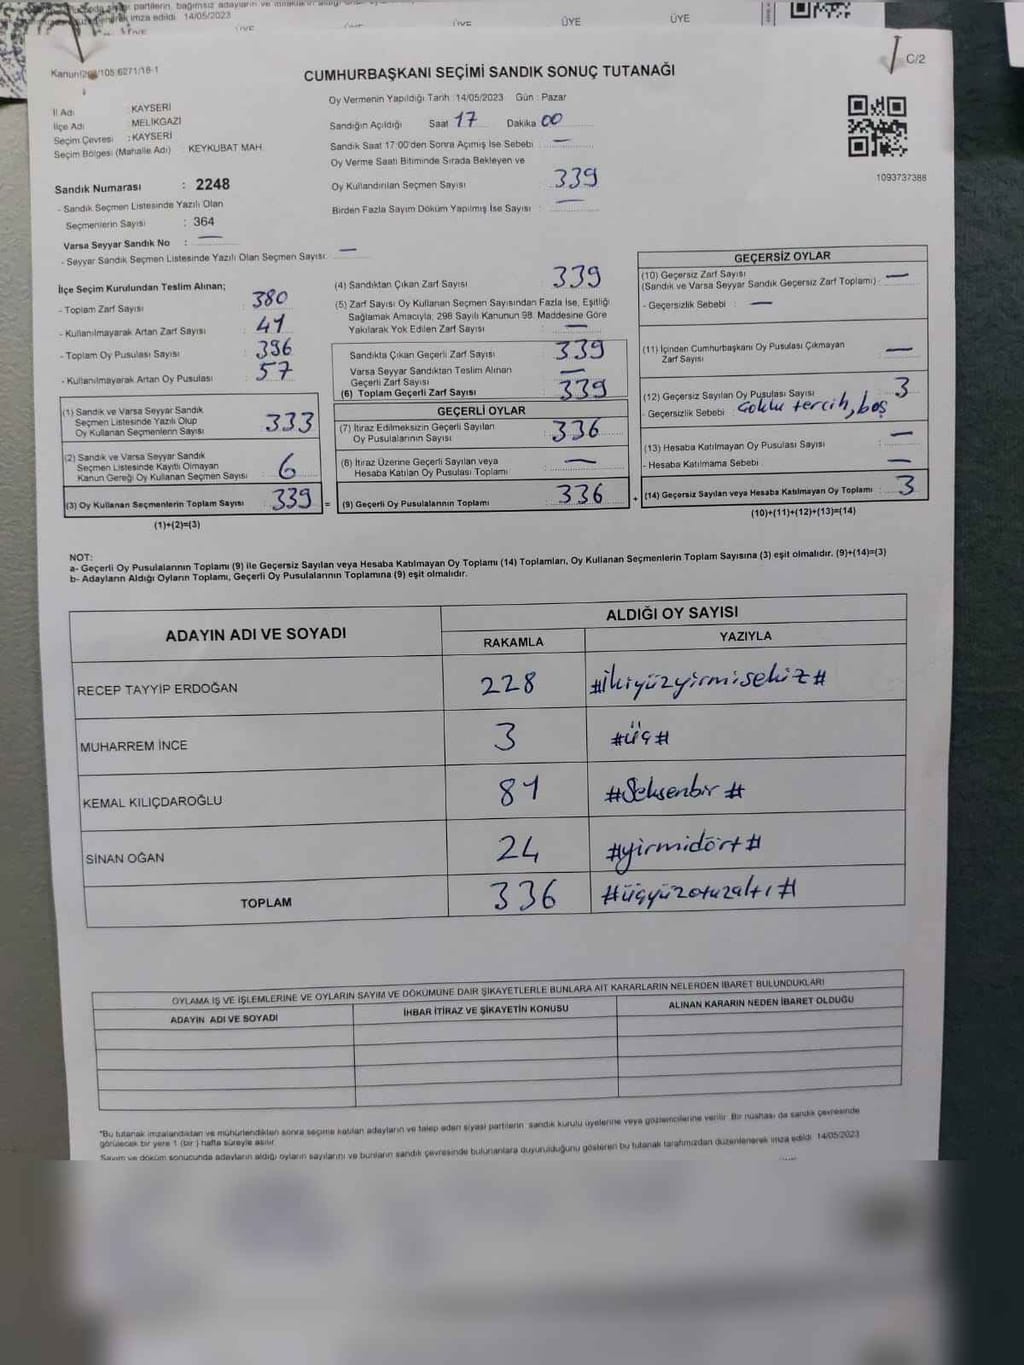 14/05/2023
ÜYE
ÜYE
C/2
CUMHURBAŞKANI SEÇİMİ SANDIK SONUÇ TUTANAĞI
İl Adı KAYSERİ
İlçe Adı MELİKGAZİ
Seçim Çevresi : KAYSERİ
Seçim Bölgesi (Mahalle Adı) KEYKUBAT MAH.
Sandık Numarası : 2248
- Sandık Seçmen Listesinde Yazılı Olan
Seçmenlerin Sayısı : 364
Varsa Seyyar Sandık No : —
- Seyyar Sandık Seçmen Listesinde Yazılı Olan Seçmen Sayısı: —
Oy Vermenin Yapıldığı Tarih :14/05/2023 Gün : Pazar
Sandığın Açıldığı Saat 17 Dakika 00
Sandık Saat 17:00'den Sonra Açımış İse Sebebi : —
Oy Verme Saati Bitiminde Sırada Bekleyen ve
Oy Kullandırılan Seçmen Sayısı : 339
Birden Fazla Sayım Döküm Yapılmış İse Sayısı : —
1093737388
İlçe Seçim Kurulundan Teslim Alınan;
- Toplam Zarf Sayısı : 380
- Kullanılmayarak Artan Zarf Sayısı : 41
- Toplam Oy Pusulası Sayısı : 396
- Kullanılmayarak Artan Oy Pusulası : 57
(1) Sandık ve Varsa Seyyar Sandık
Seçmen Listesinde Yazılı Olup
Oy Kullanan Seçmenlerin Sayısı : 333
(2) Sandık ve Varsa Seyyar Sandık
Seçmen Listesinde Kayıtlı Olmayan
Kanun Gereği Oy Kullanan Seçmen Sayısı : 6
(3) Oy Kullanan Seçmenlerin Toplam Sayısı : 339
(1)+(2)=(3)
=
(4) Sandıktan Çıkan Zarf Sayısı : 339
(5) Zarf Sayısı Oy Kullanan Seçmen Sayısından Fazla İse, Eşitliği
Sağlamak Amacıyla; 298 Sayılı Kanunun 98. Maddesine Göre
Yakılarak Yok Edilen Zarf Sayısı : —
Sandıkta Çıkan Geçerli Zarf Sayısı : 339
Varsa Seyyar Sandıktan Teslim Alınan
Geçerli Zarf Sayısı : —
(6) Toplam Geçerli Zarf Sayısı : 339
GEÇERLİ OYLAR
(7) İtiraz Edilmeksizin Geçerli Sayılan
Oy Pusulalarının Sayısı : 336
(8) İtiraz Üzerine Geçerli Sayılan veya
Hesaba Katılan Oy Pusulası Toplamı : —
(9) Geçerli Oy Pusulalarının Toplamı : 336
+
GEÇERSİZ OYLAR
(10) Geçersiz Zarf Sayısı
(Sandık ve Varsa Seyyar Sandık Geçersiz Zarf Toplamı) : —
- Geçersizlik Sebebi : —
(11) İçinden Cumhurbaşkanı Oy Pusulası Çıkmayan
Zarf Sayısı : —
(12) Geçersiz Sayılan Oy Pusulası Sayısı : 3
- Geçersizlik Sebebi : Çoklu tercih, boş
(13) Hesaba Katılmayan Oy Pusulası Sayısı : —
- Hesaba Katılmama Sebebi : —
(14) Geçersiz Sayılan veya Hesaba Katılmayan Oy Toplamı : 3
(10)+(11)+(12)+(13)=(14)
NOT:
a- Geçerli Oy Pusulalarının Toplamı (9) ile Geçersiz Sayılan veya Hesaba Katılmayan Oy Toplamı (14) Toplamları, Oy Kullanan Seçmenlerin Toplam Sayısına (3) eşit olmalıdır. (9)+(14)=(3)
b- Adayların Aldığı Oyların Toplamı, Geçerli Oy Pusulalarının Toplamına (9) eşit olmalıdır.
ADAYIN ADI VE SOYADI
ALDIĞI OY SAYISI
RAKAMLA YAZIYLA
RECEP TAYYİP ERDOĞAN 228 #İkiyüzyirmisekiz#
MUHARREM İNCE 3 #üç#
KEMAL KILIÇDAROĞLU 81 #Seksenbir#
SİNAN OĞAN 24 #yirmidört#
TOPLAM 336 #üçyüzotuzaltı#
OYLAMA İŞ VE İŞLEMLERİNE VE OYLARIN SAYIM VE DÖKÜMÜNE DAİR ŞİKAYETLERLE BUNLARA AİT KARARLARIN NELERDEN İBARET BULUNDUKLARI
ADAYIN ADI VE SOYADI İHBAR İTİRAZ VE ŞİKAYETİN KONUSU ALINAN KARARIN NEDEN İBARET OLDUĞU
*Bu tutanak imzalandıktan ve mühürlendikten sonra seçime katılan adayların ve talep eden siyasi partilerin sandık kurulu üyelerine veya gözlemcilerine verilir. Bir nüshası da sandık çevresinde
görülecek bir yere 1 (bir) hafta süreyle asılır.
Sayım ve döküm sonucunda adayların aldığı oyların sayılarını ve bunların sandık çevresinde bulunanlara duyurulduğunu gösteren bu tutanak tarafımızdan düzenlenerek imza edildi. 14/05/2023